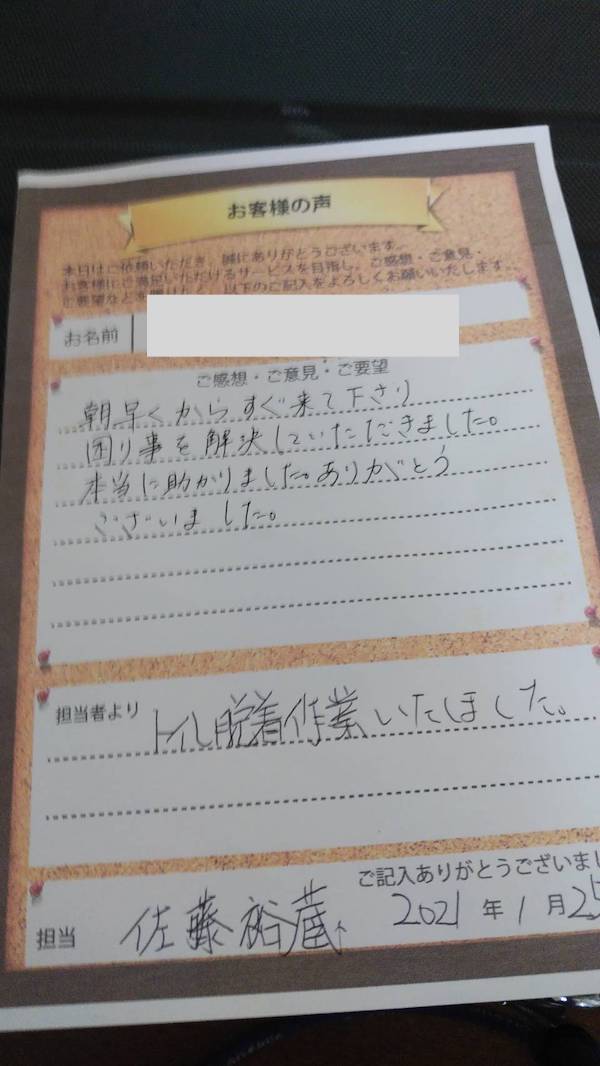 お客様の声
本日はご依頼いただき、誠にありがとうございます。
お客様にご満足いただけるサービスを目指し、ご感想・ご意見・
ご要望などを賜りたく、以下のご記入をよろしくお願いいたします。
お名前
ご感想・ご意見・ご要望
朝早くからすぐ来て下さり
困り事を解決していただきました。
本当に助かりました。ありがとう
ございました。
担当者より
トイレ脱着作業いたしました。
ご記入ありがとうございまし
担当 佐藤裕蔵 2021年1月25